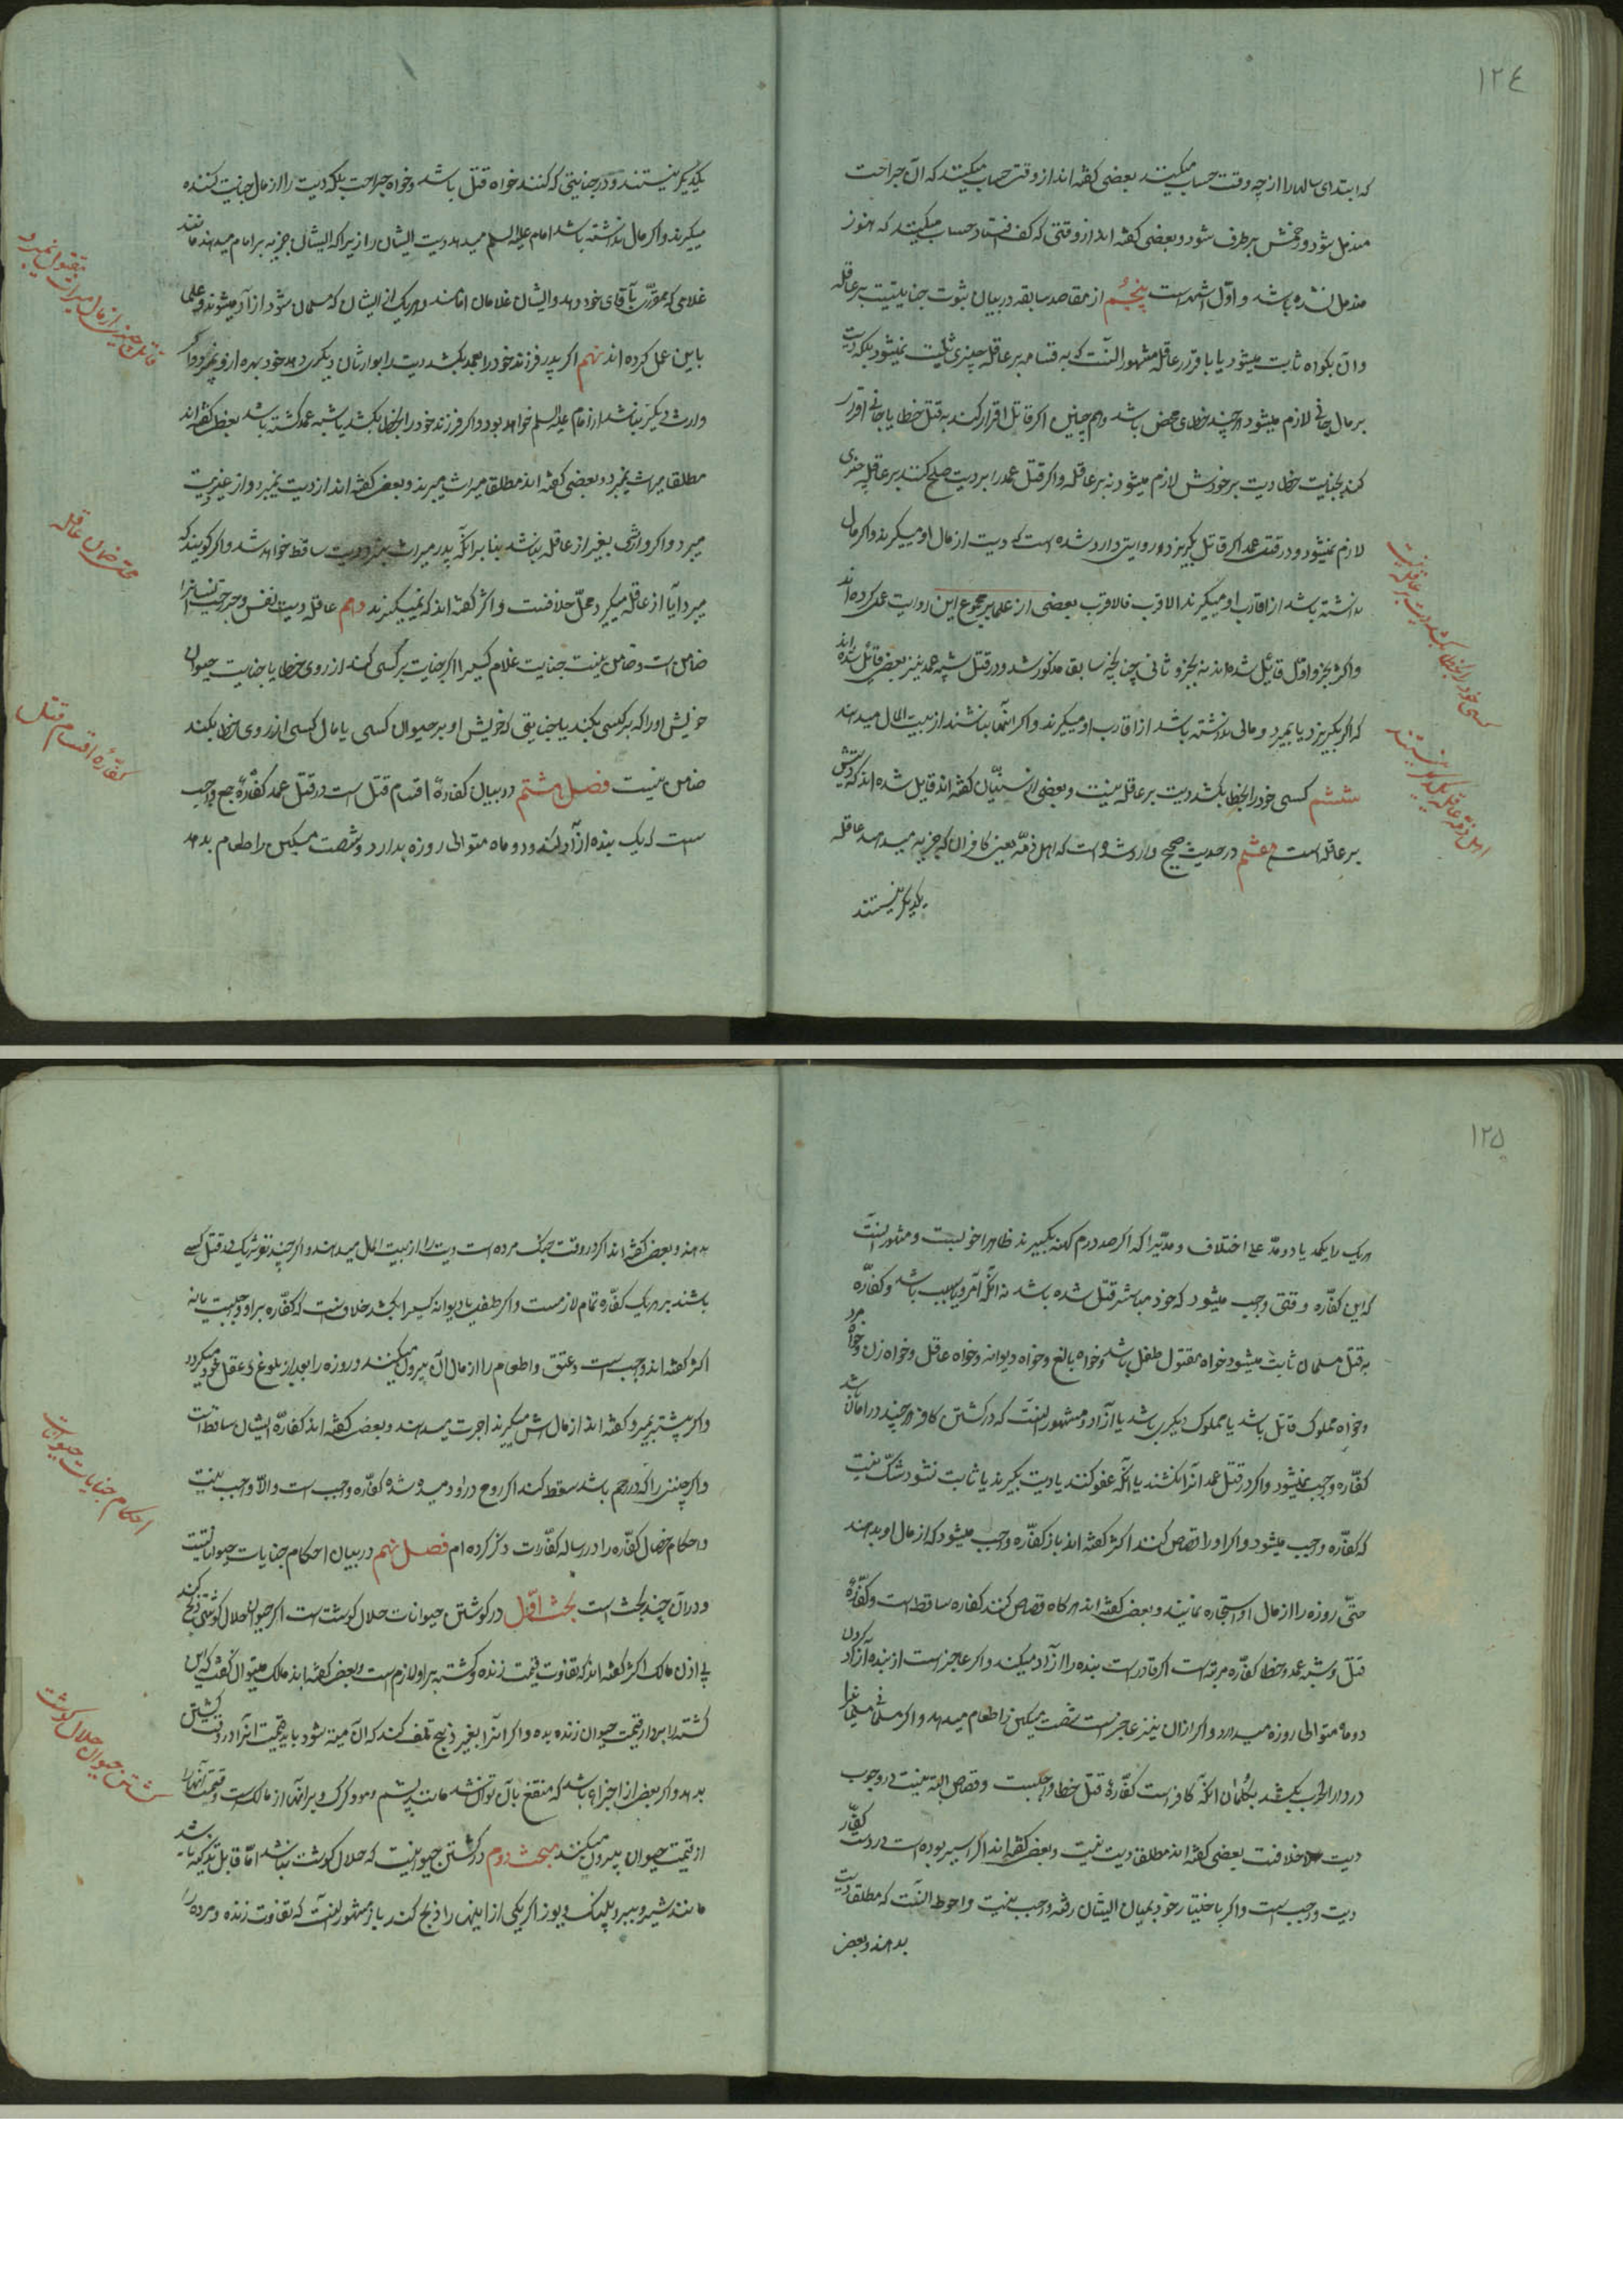 ١٢٤
که ابتدای سالها را از چه وقت حساب میکنند بعضی گفته‌اند از وقتی حساب میکنند که آن جراحت
مندمل شود و زخمش برطرف شود و بعضی گفته‌اند از وقتی که کف افتاد حساب میکنند که هنوز
مندمل نشده باشد و اوّل اشهر است پنجُم از مقاصد سابقه در بیان ثبوت جنایتست بر عاقله
وآن بگواه ثابت میشود یا باقرار عاقله مشهور آنست که بقسامه بر عاقله چیزی ثابت نمیشود بلکه دیت
بر مال جانی لازم میشود هرچند خطای محض باشد و هم چنین اگر قاتل اقرار کند به قتل خطا یا جانی اقرار
کند بجنایت خطا دیت بر خودش لازم میشود نه بر عاقله و اگر قتل عمد را بر دیت صلح کنند بر عاقله چیزی
لازم نمیشود و در قتل عمد اگر قاتل بگریزد در روایتی وارد شده است که دیت از مال او میگیرند و اگر مال
نداشته باشد از اقارب او میگیرند الاقرب فالاقرب بعضی از علما بمجموع این روایت عمل کرده‌اند
و اکثر بجزو اوّل قائل شده‌اند نه بجزو ثانی چنانچه سابقا مذکور شد و در قتل شبه عمد نیز بعضی قائل شده‌اند
که اگر بگریزد یا بمیرد و مالی نداشته باشد از اقارب او میگیرند و اگر اینها نباشند از بیت المال میدهند
ششم کسی خود را بخطا بکشد دیت بر عاقله نیست و بعضی از سنیّان گفته‌اند قایل شده‌اند که دیتش
بر عاقله است هفتم در حدیث صحیح وارد شده است که اهل ذمّه یعنی کافران که جزیه میدهند عاقله
یکدیگر نیستند
کسی خود را بخطا بکشد دیت بر عاقله نیست
اهل ذمّه عاقله یکدیگر نیستند
یکدیگر نیستند و در جنایتی که کنند خواه قتل باشد و خواه جراحت بلکه دیت را از مال جنایت کننده
میگیرند و اگر مال نداشته باشد امام علیه السلم میدهد دیت ایشان را زیرا که ایشان جزیه بر امام میدهند مانند
غلامی که مقرّر بآقای خود دهد و ایشان غلامان امامند و هر یک از ایشان که مسلمان شود از آد میشوند و علما
باین عمل کرده‌اند نهم اگر پدر فرزند خود را بعمد بکشد دیت را بوارثان دیگر میدهد و خود بهره از و نمیبرد و اگر
وارث دیگر نباشد از امام علیه السلم خواهد بود و اگر فرزند خود را بخطا بکشد یا شبه عمد کشته باشد بعضی گفته‌اند
مطلقا میراث نمیبرد و بعضی گفته‌اند مطلقا میراث میبرند و بعضی گفته‌اند از دیت نمیبرد و از غیر دیت
میبرد و اگر وارثی بغیر از عاقله نباشد بنا بر آنکه پدر میراث نبرد دیت ساقط خواهد شد و اگر گویند که
میبرد آیا از عاقله میگیرد محلّ خلافست و اکثر گفته‌اند که نمیگیرند دهم عاقله دیت نفس و جراحت انسانرا
ضامن است و ضامن نیست جنایت غلام کسی را اگر جنایت بر کسی کند از روی خطا یا جنایت حیوان
خویش او را که بر کسی بکند یا جنایتی که خویش او بر حیوان کسی یا مال کسی از روی خطا بکند
ضامن نیست فصل هشتم در بیان کفاره اقسام قتل است در قتل عمد کفّارهٔ جمع واجب
ست که یک بنده از آد کند و دو ماه متوالی روزه بدارد و شصت مسکین را طعام بدهد
قاتل چیزی از مال میراث مقتول نمیبرد
محل ضمان عاقله
کفّارهٔ اقسام قتل
١٢٥
هر یک را یکمد یا دو مدّ علی اختلاف و مدّیرا که اگر صد درم کهنه بگیرند ظاهرا خوبست و مشهور آنست
که این کفّاره وقتی واجب میشود که خود مباشر قتل شده باشد نه آنکه آمر یا سبب باشد و کفّاره
به قتل مسلمان ثابت میشود خواه مقتول طفل باشد و خواه بالغ و خواه دیوانه و خواه عاقل و خواه زن و خواه مرد
و خواه مملوک قاتل باشد یا مملوک دیگری باشد یا آزاد و مشهور آنست که در کشتن کافر هرچند در امان باشد
کفّاره واجب نمیشود و اگر در قتل عمد آنرا نکشند یا آنکه عفو کنند یا دیت بگیرند یا ثابت نشود شکّ نیست
که کفّاره واجب میشود و اگر او را قصاص کنند اکثر گفته‌اند باز کفّاره واجب میشود که از مال او بدهند
حتّی روزه را از مال او استجاره نمایند و بعضی گفته‌اند هرگاه قصاص کنند کفاره ساقط است و کفّارهٔ
قتل و شبه عمد و خطا کفّاره مرتبه است اگر قادر است بنده را آزاد میکند و اگر عاجز است از بنده آزاد کردن
دو ماه متوالی روزه میدارد و اگر از آن نیز عاجز است شصت مسکین را طعام میدهد و اگر مسلمانی مسلمانیرا
در دار الحرب بکشد بگمان آنکه کافر است کفّارهٔ قتل خطا واجبست و قصاص البته نیست و در وجوب
دیت خلافست بعضی گفته‌اند مطلقا دیت نیست و بعضی گفته‌اند اگر اسیر بوده است در دست کفّار
دیت واجب است و اگر باختیار خود بمیان ایشان رفته واجب نیست و احوط آنست که مطلقا دیت
بدهند و بعضی
بدهند و بعضی گفته‌اند اگر در وقت جنگ مرده است دیت را از بیت المال میدهند و اگر چند نفر شریک در قتل کسی
باشند بر هر یک کفّاره تمام لازمست و اگر طفلی یا دیوانه کسیرا بکشد خلافست که کفّاره بر او واجبست یا نه
اکثر گفته‌اند واجب است و عتق و اطعام را از مال آن بیرون میکنند و روزه را بعد از بلوغ و عقل خود میگیرد
و اگر پیشتر بمیرد گفته‌اند از مالش میگیرند اجرت میدهند و بعضی گفته‌اند کفّارهٔ ایشان ساقط است
و اگر جنینی را که در رحم باشد سقط کند اگر روح در او دمیده شده کفّاره واجب است و الّا واجب نیست
و احکام خصال کفّاره را در رساله کفّارات ذکر کرده‌ام فصل نهم در بیان احکام جنایات حیواناتست
و در آن چند بحث است بحث اوّل در کشتن حیوانات حلال گوشت است اگر حیوان حلال گوشتی ذبح کند
بی اذن مالک اکثر گفته‌اند که تفاوت قیمت زنده و کشته بر او لازم است و بعضی گفته‌اند مالک میتواند گفت که این
کشته را بردار قیمت حیوان زنده بده و اگر آنرا بغیر ذبح تلف کند که آن میته شود باید قیمت آنرا در وقت کشتن
بدهد و اگر بعضی از اجزاء باشد که منتفع بآن توان شد مانند پشم و مو و کرک و پر آنها از مالک است و قیمت آنها را
از قیمت حیوان بیرون میکنند مبحث دوم در کشتن حیوانیست که حلال گوشت نباشد امّا قابل تذکیه باشد
مانند شیر و ببر و پلنگ و یوز اگر یکی از اینها را ذبح کند باز مشهور آنست که تفاوت زنده و مرده را
احکام جنایات حیوانات
کشتن حیوان حلال گوشت